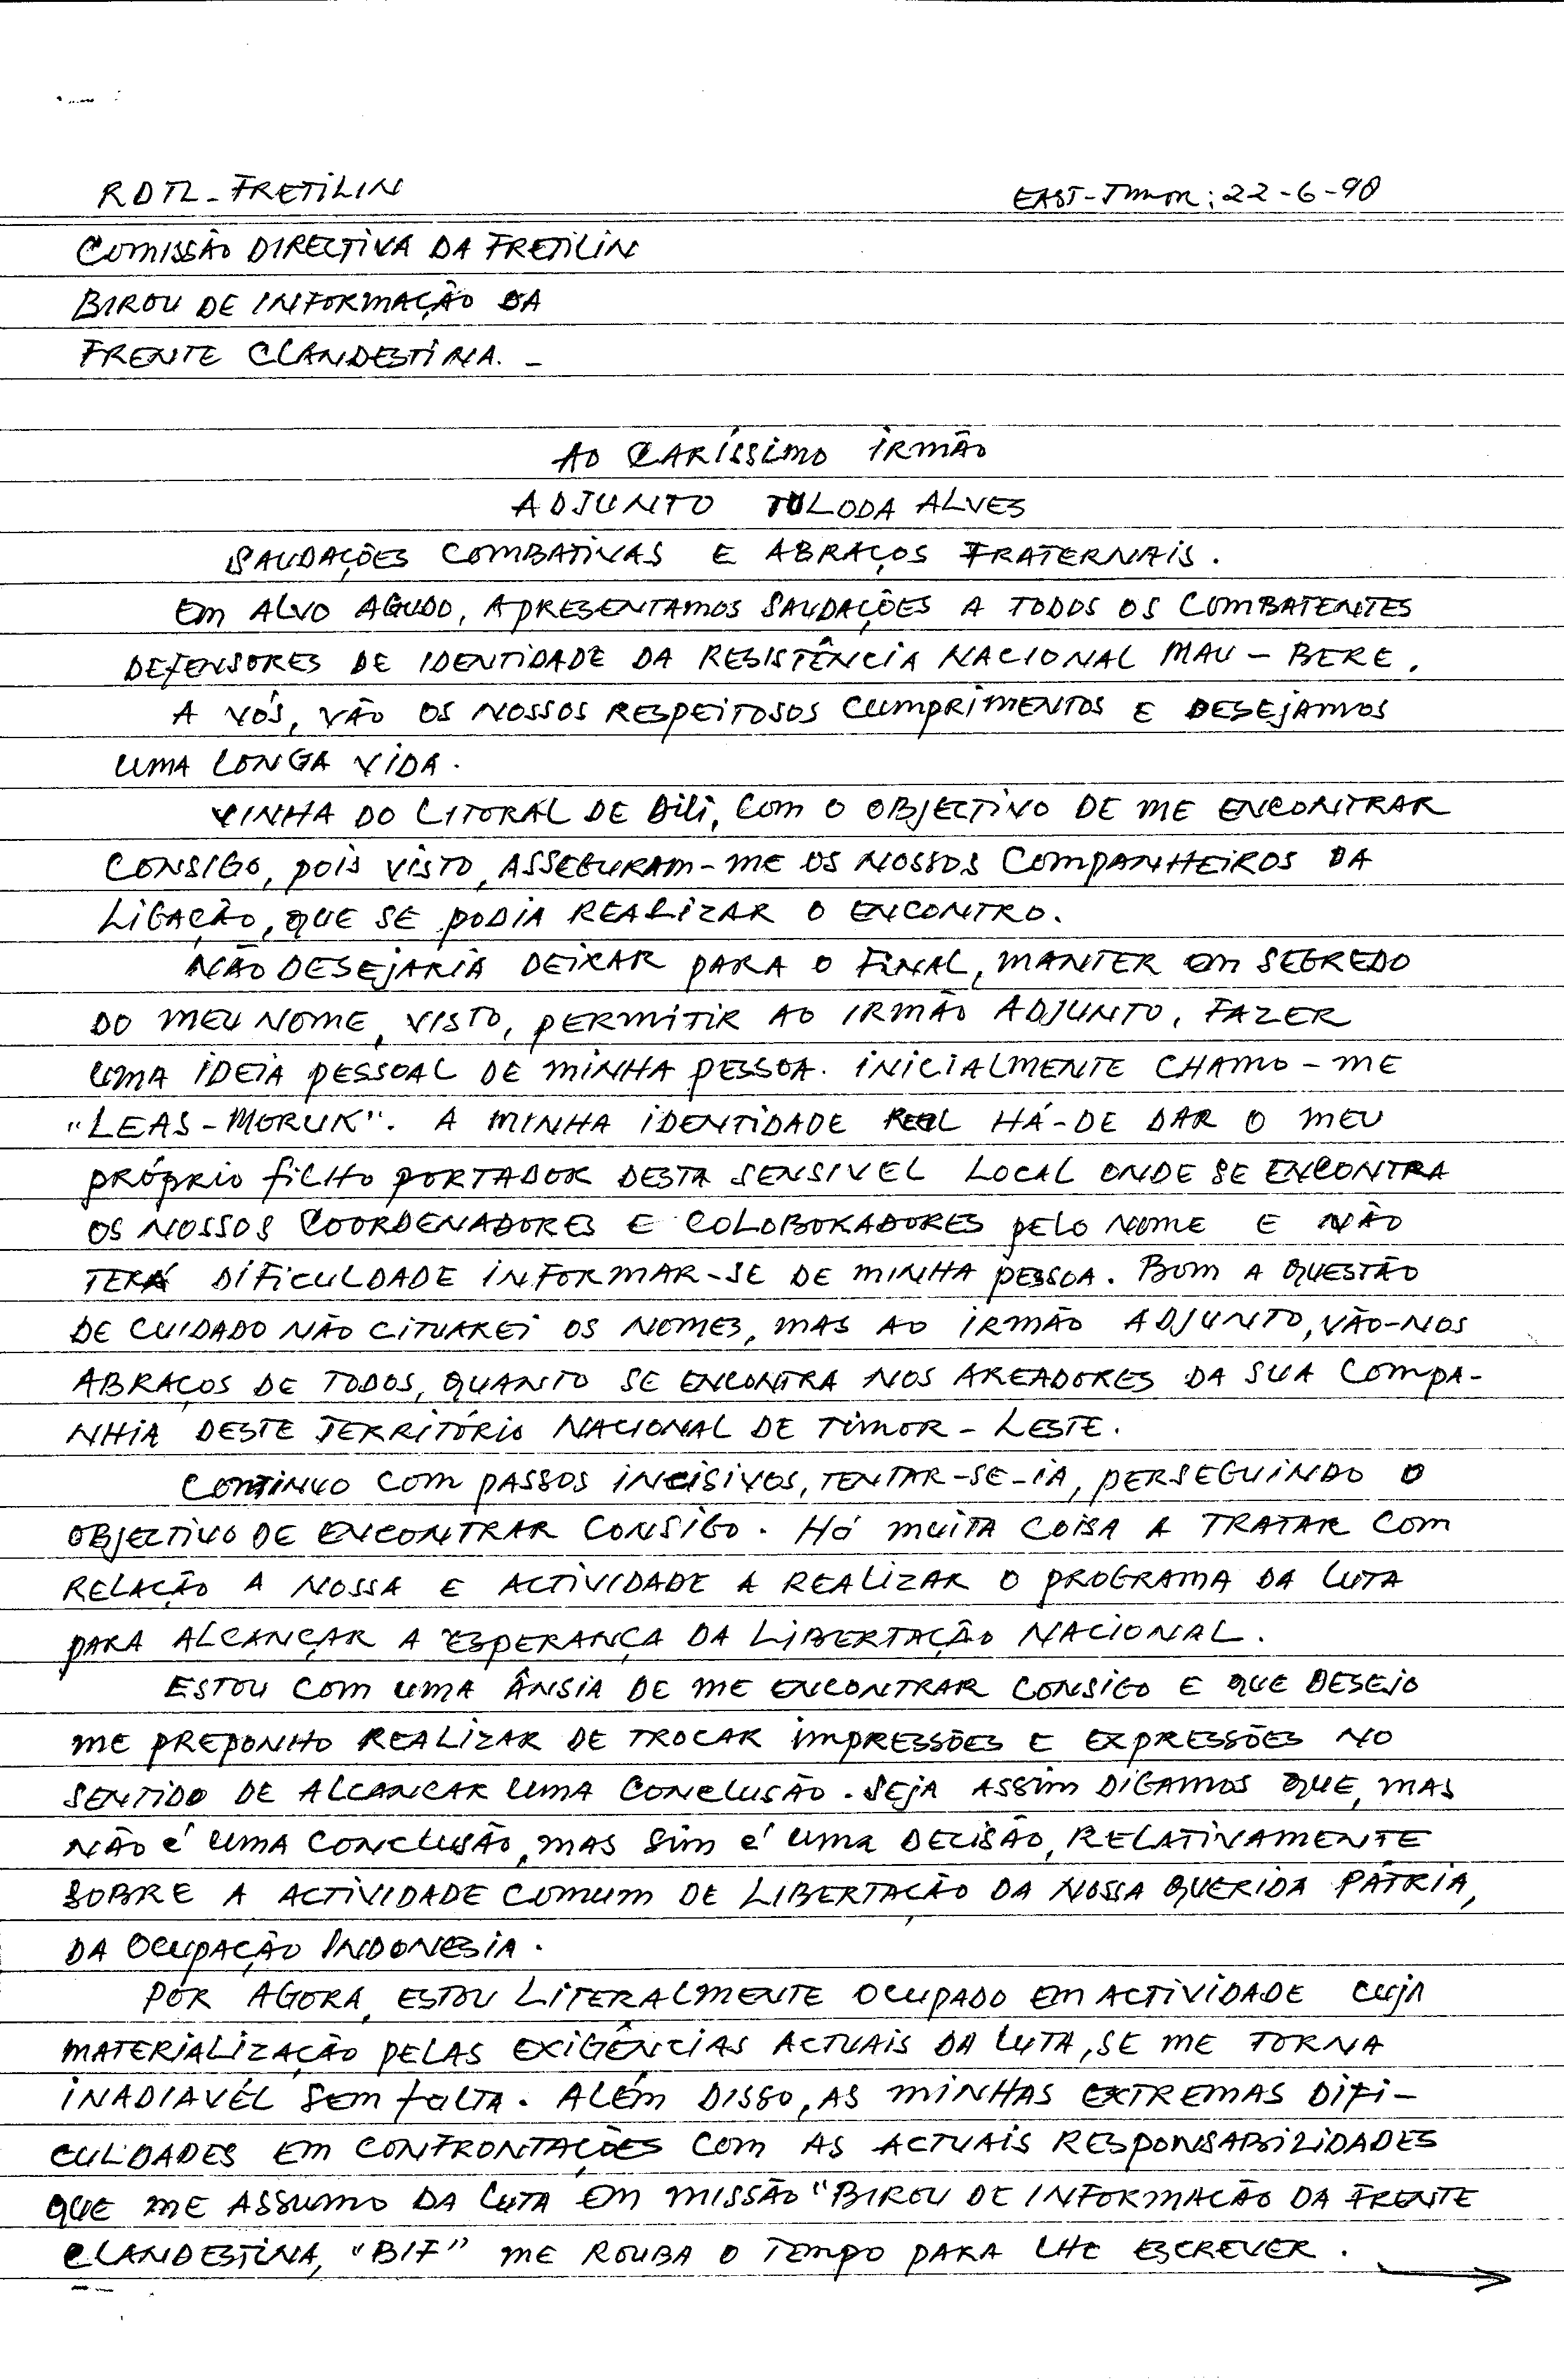 RDTL - FRETILIN
EAST-TIMOR: 22-6-90
COMISSÃO DIRECTIVA DA FRETILIN
BIROU DE INFORMAÇÃO DA
FRENTE CLANDESTINA. -
AO CARÍSSIMO IRMÃO
ADJUNTO TULODA ALVES
SAUDAÇÕES COMBATIVAS E ABRAÇOS FRATERNAIS.
EM ALVO AGUDO, APRESENTAMOS SAUDAÇÕES A TODOS OS COMBATENTES
DEFENSORES DE IDENTIDADE DA RESISTÊNCIA NACIONAL MAU - BERE.
A VÓS, VÃO OS NOSSOS RESPEITOSOS CUMPRIMENTOS E DESEJAMOS
UMA LONGA VIDA.
VINHA DO LITORAL DE DILI, COM O OBJECTIVO DE ME ENCONTRAR
CONSIGO, POIS VISTO, ASSEGURAM-ME OS NOSSOS COMPANHEIROS DA
LIGAÇÃO, QUE SE PODIA REALIZAR O ENCONTRO.
NÃO DESEJARIA DEIXAR PARA O FINAL, MANTER EM SEGREDO
DO MEU NOME, VISTO, PERMITIR AO IRMÃO ADJUNTO, FAZER
UMA IDEIA PESSOAL DE MINHA PESSOA. INICIALMENTE CHAMO - ME
"LEAS - MORUK". A MINHA IDENTIDADE REAL HÁ-DE DAR O MEU
PRÓPRIO FILHO PORTADOR DESTA SENSIVEL LOCAL ONDE SE ENCONTRA
OS NOSSOS COORDENADORES E COLOBORADORES PELO NOME E NÃO
TERÁ DIFICULDADE INFORMAR-SE DE MINHA PESSOA. BOM A QUESTÃO
DE CUIDADO NÃO CITUAREI OS NOMES, MAS AO IRMÃO ADJUNTO, VÃO-NOS
ABRAÇOS DE TODOS, QUANTO SE ENCONTRA NOS AREADORES DA SUA COMPA-
NHIA DESTE TERRITÓRIO NACIONAL DE TIMOR - LESTE.
CONTINUO COM PASSOS INCISIVOS, TENTAR-SE-IA, PERSEGUINDO O
OBJECTIVO DE ENCONTRAR CONSIGO. HÁ MUITA COISA A TRATAR COM
RELAÇÃO A NOSSA E ACTIVIDADE A REALIZAR O PROGRAMA DA LUTA
PARA ALCANÇAR A ESPERANÇA DA LIBERTAÇÃO NACIONAL.
ESTOU COM UMA ÂNSIA DE ME ENCONTRAR CONSIGO E QUE DESEJO
ME PREPONHO REALIZAR DE TROCAR IMPRESSÕES E EXPRESSÕES NO
SENTIDO DE ALCANCAR UMA CONCLUSÃO. SEJA ASSIM DIGAMOS QUE, MAS
NÃO É UMA CONCLUSÃO, MAS SIM É UMA DECISÃO, RELATIVAMENTE
SOBRE A ACTIVIDADE COMUM DE LIBERTAÇÃO DA NOSSA QUERIDA PÁTRIA,
DA OCUPAÇÃO INDONESIA.
POR AGORA, ESTOU LITERALMENTE OCUPADO EM ACTIVIDADE CUJA
MATERIALIZAÇÃO PELAS EXIGÊNCIAS ACTUAIS DA LUTA, SE ME TORNA
INADIAVÉL SEM FALTA. ALÉM DISSO, AS MINHAS EXTREMAS DIFI-
CULDADES EM CONFRONTAÇÕES COM AS ACTUAIS RESPONSABILIDADES
QUE ME ASSUMO DA LUTA EM MISSÃO "BIROU DE INFORMACÃO DA FRENTE
CLANDESTINA, "BIF" ME ROUBA O TEMPO PARA LHE ESCREVER.